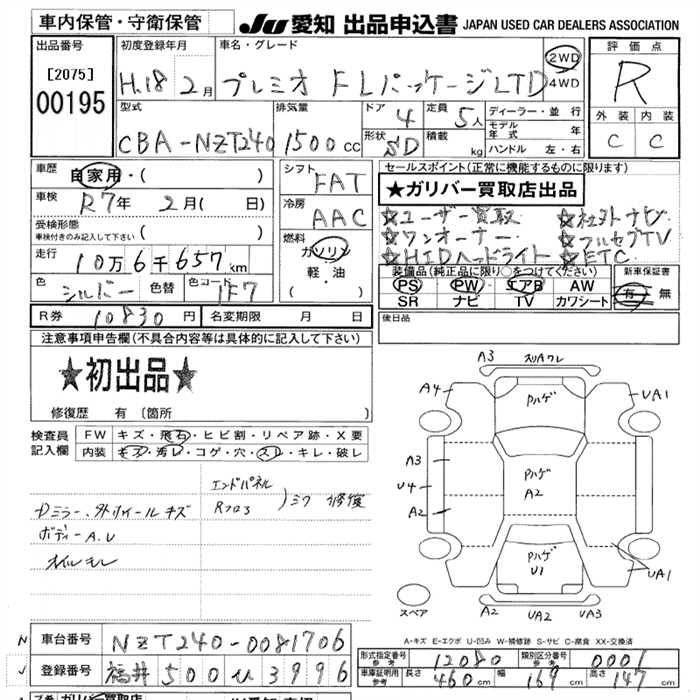 車内保管・守衛保管 JU 愛知 出品申込書 JAPAN USED CAR DEALERS ASSOCIATION
出品番号 初度登録年月 車名・グレード 評価点
[2075] H.18 2月 プレミオ FLパッケージLTD 2WD 4WD R
00195 型式 排気量 ドア 定員 ディーラー・並行 外装 内装
CBA-NZT240 1500cc 4 5人 モデル年式 年 C C
形状 SD 積載 kg ハンドル 左・右
車歴 自家用・( ) シフト FAT セールスポイント(正常に機能するものに限ります)
車検 R7年 2月( 日) 冷房 AAC ★ガリバー買取店出品
受検形態 ☆ユーザー買取 ☆社外ナビ
車検付きのみ記入して下さい( ) 燃料 ガソリン ☆ワンオーナー ☆フルセグTV
走行 10万6千657km 軽・油 ☆HIDヘッドライト ☆ETC
色 シルバー 色替 色コード 1F7 ( ・ ) 装備品(純正品に限り○をつけてください) 新車保証書
PS PW エアB AW 有・無
SR ナビ TV カワシート
R券 10830円 名変期限 月 日 後日品
注意事項申告欄(不具合内容等は具体的に記入して下さい)
★初出品★
修復歴 有 〔箇所 〕
検査員記入欄 FW キズ・飛石・ヒビ割・リペア跡・X要
内装 キズ・汚レ・コゲ・穴・スレ・キレ・破レ
エンドパネル
Dミラー、外ホイールキズ Rフロア )ミワ 修復
ボディーA.U
オイルモレ
A3 スリAワレ
A4 Pハゲ UA1
A3 Pハゲ
U4 A2
A2
Pハゲ
U1 UA1
スペア A2 UA2 UA3
A-キズ E-エクボ U-凹み W-補修跡 S-サビ C-腐食 XX-交換済
N 車台番号 NZT240-0081706 形式指定番号 参考 12080 類別区分番号 参考 0001
J 登録番号 福井 500 U 3996 車庫証明用 参考 長さ 460cm 幅 169cm 高さ 147cm